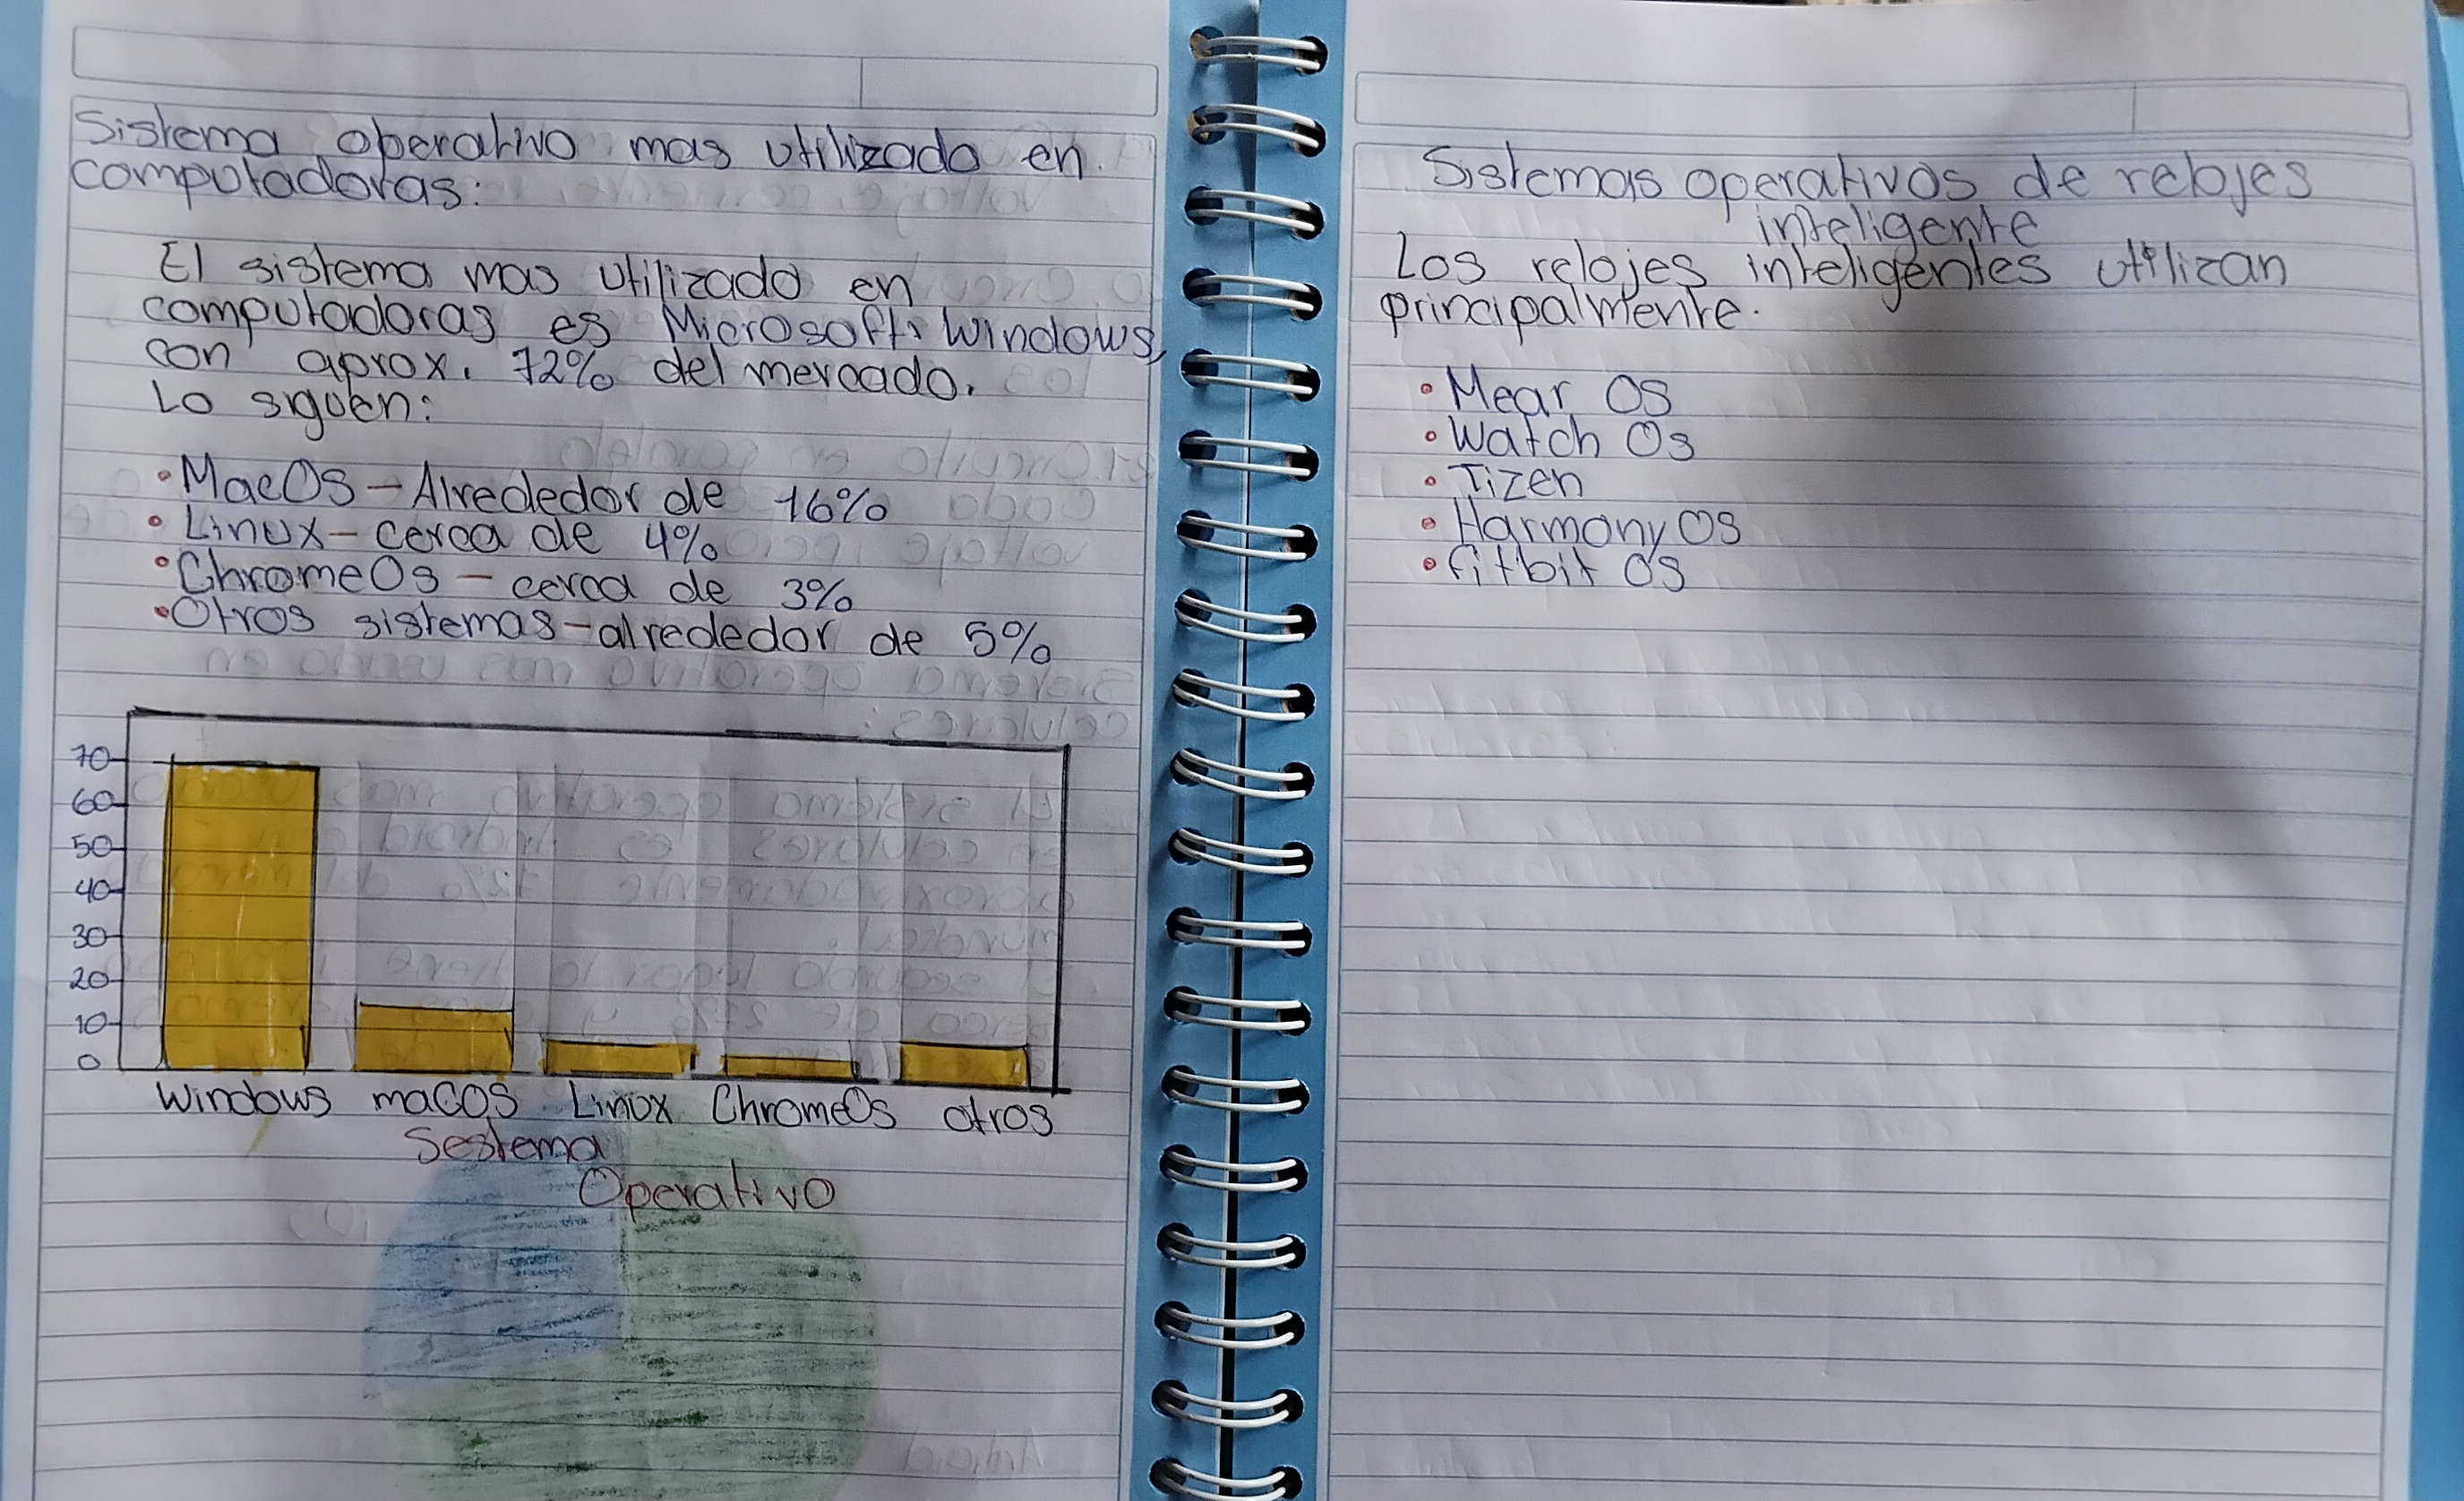 Sistema operativo mas utilizado en
computadoras:
El sistema mas utilizado en
computadoras es Microsoft Windows,
con aprox. 72% del mercado.
Lo siguen:
• MacOS - Alrededor de 16%
• Linux - cerca de 4%
• ChromeOs - cerca de 3%
• Otros sistemas - alrededor de 5%
70
60
50
40
30
20
10
0
Windows macOS Linux ChromeOs otros
Sestema
Operativo
Sistemas operativos de relojes
inteligente
Los relojes inteligentes utilizan
principalmente.
• Mear OS
• Watch Os
• Tizen
• Harmony OS
• fitbit OS